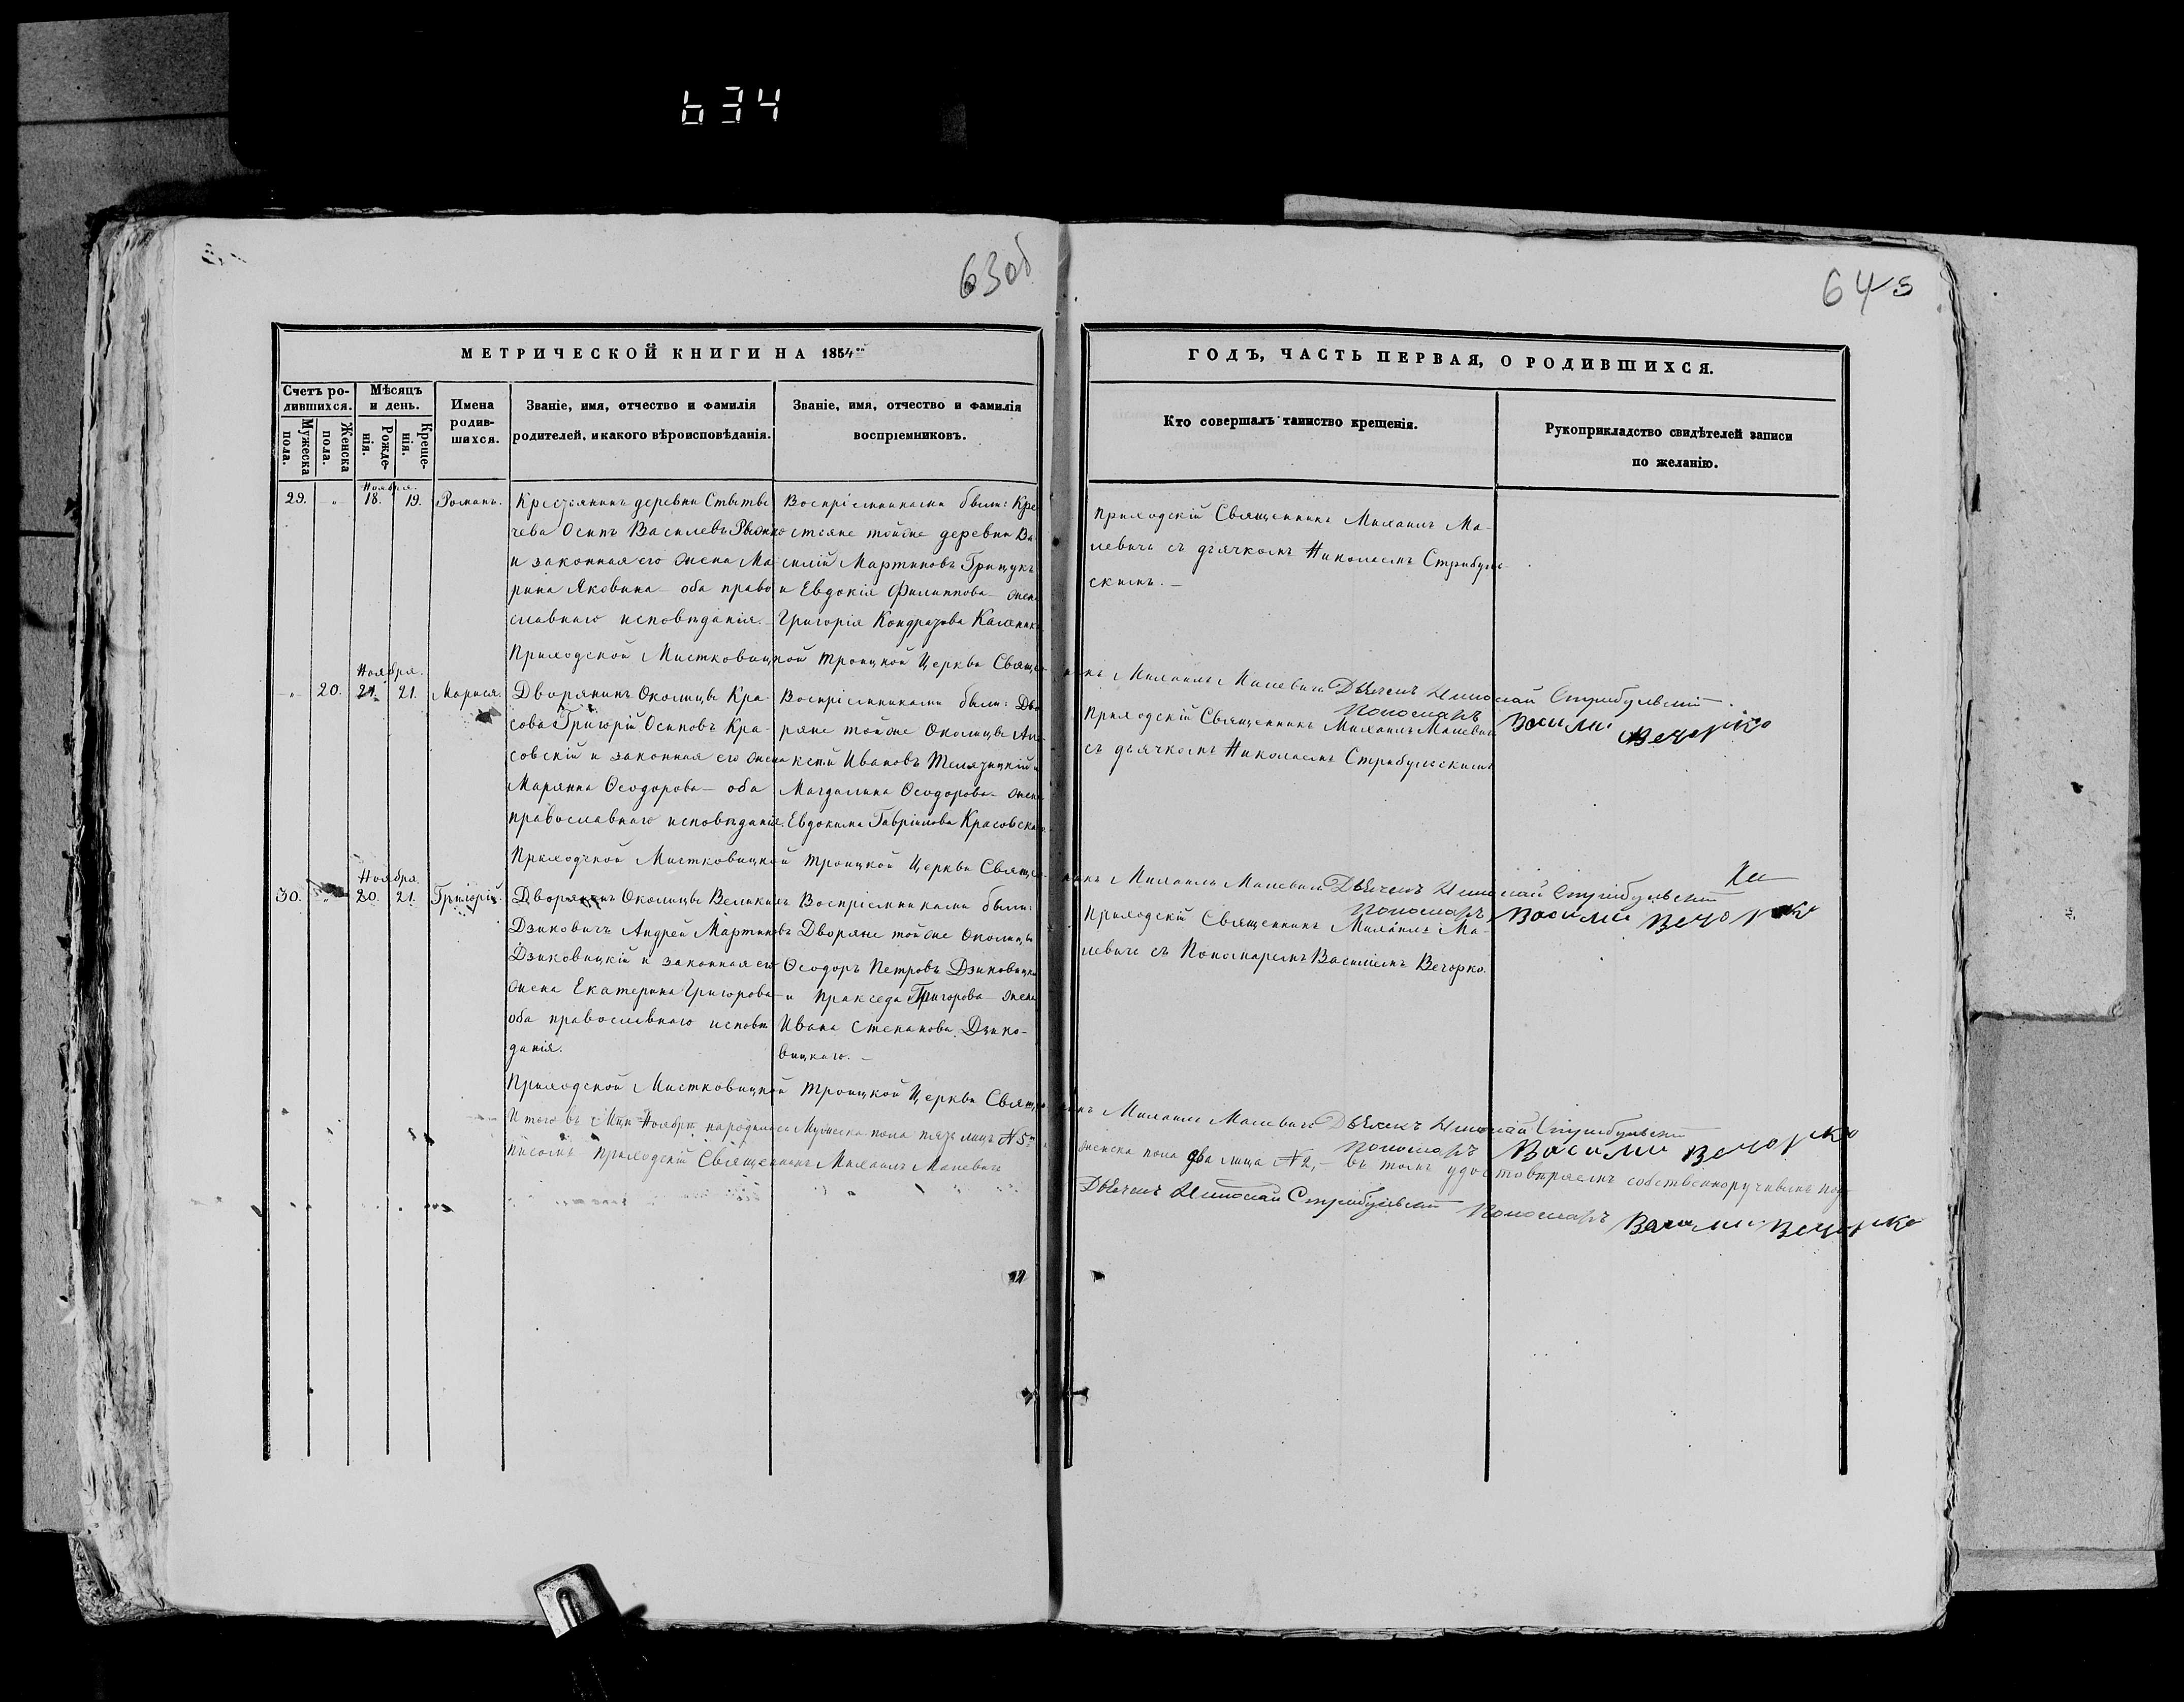 634
63об
64
МЕТРИЧЕСКОЙ КНИГИ НА 1854
ГОДЪ, ЧАСТЬ ПЕРВАЯ, О РОДИВШИХСЯ.
Счетъ ро-
дившихся.
Мужеска
пола.
Женска
пола.
Мѣсяцъ
и день.
Рожде-
нія.
Креще-
нія.
Имена
родив-
шихся.
Званіе, имя, отчество и фамилія
родителей, и какого вѣроисповѣданія.
Званіе, имя, отчество и фамилія
воспріемниковъ.
Кто совершалъ таинство крещенія.
Рукоприкладство свидѣтелей записи
по желанію.
29.
Ноября.
18.
19.
Романъ.
Крестьянинъ деревни
чева Осипъ Василевъ
и законная его жена Ма-
рина Яковина оба право
славнаго исповѣданія.
Воспріемниками были: Кре
стьяне тойже деревни Ва
силій Мартиновъ Грицукъ
и Евдокія Филиппова жена
Григорія Кондратова
Приходскій Священникъ Михаилъ Ма-
левичъ съ дьячкомъ Николаемъ Стрибуль-
скимъ.
Приходской Мистковицкой Троицкой Церкви Свяще
никъ Михаилъ Малевичъ Дьячекъ Николай Стрибульскій
Пономарь Василий Вечорко
20.
Ноября.
21.
21.
Мариея.
Дворянинъ Околицы Кра-
сова Григорій Осиповъ Кра-
совскій и законная его жена
Марянна Ѳеодорова оба
православнаго исповѣданія.
Воспріемниками были: Дво
ряне тойже Околицы Але
ксѣй Ивановъ
Магдалина Ѳеодорова жена
Евдокима Гавріилова Красовскаго
Приходскій Священникъ Михаилъ Малевичъ
съ дьячкомъ Николаемъ Стрибульскимъ
Приходской Мистковицкой Троицкой Церкви Священ
никъ Михаилъ Малевичъ Дьячекъ Николай Стрибульскій
Пономарь Василий Вечорко
30.
Ноября
20.
21.
Григорій.
Дворянинъ Околицы Великихъ
Дзиковичъ Андрей Мартиновъ
Дзиковицкій и законная его
жена Екатерина Григорова
оба православнаго исповѣ
данія.
Воспріемниками были:
Дворяне тойже Околицы
Ѳеодоръ Петровъ Дзиковицкій
и Пракседа Григорова жена
Ивана Степанова Дзико-
вицкаго.
Приходскій Священникъ Михаилъ Ма-
левичъ съ Пономаремъ Василіемъ Вечорко.
Приходской Мистковицкой Троицкой Церкви Священ
никъ Михаилъ Малевичъ Дьячекъ Николай Стрибульскій
Пономарь Василий Вечорко
Итого въ Ноябрѣ народилось Мужеска пола пять лицъ №5
женска пола два лица №2, въ томъ удостовѣряемъ собственноручнымъ под
писомъ Приходскій Священникъ Михаилъ Малевичъ
Дьячекъ Николай Стрибульскій Пономарь Василий Вечорко